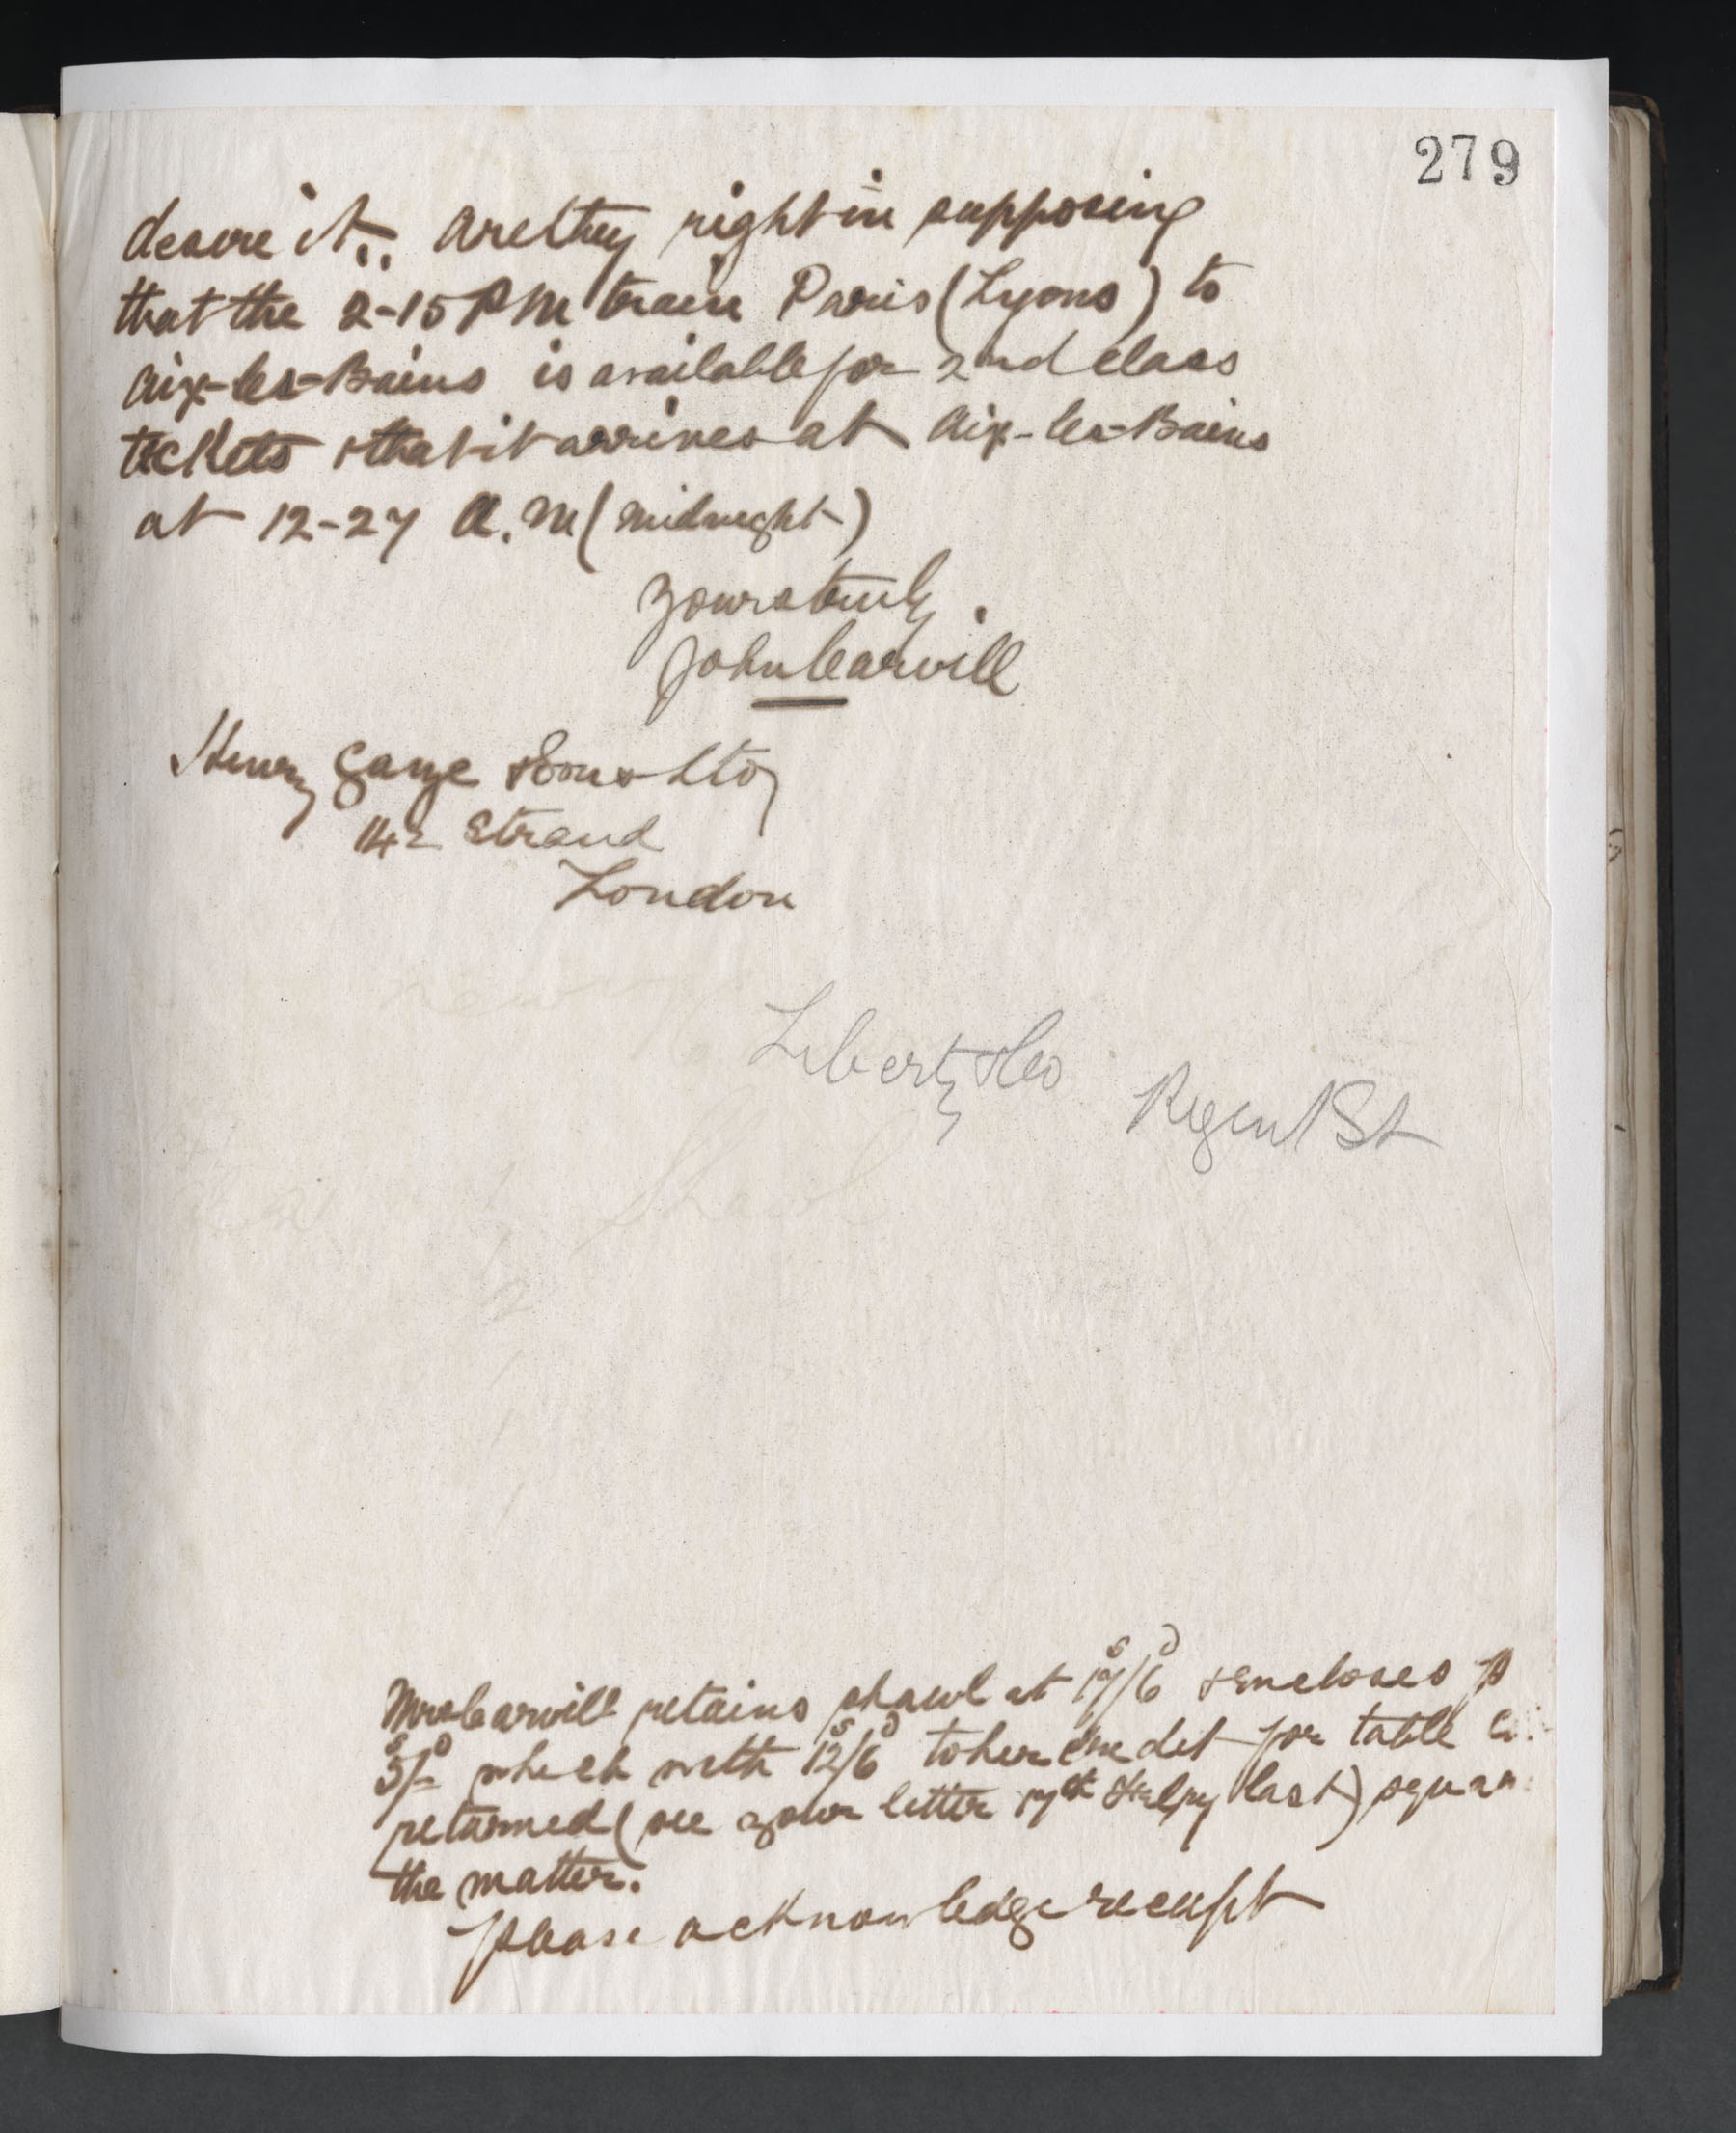 279
desire it. Are they right in supposing
that the 2-15 PM train Paris (Lyons) to
Aix-les-Bains is available for 2nd class
tickets & that it arrives at Aix-les-Bains
at 12-27 A.M (midnight)
Yours truly.
John Carvill
Henry Gaze & Sons Ltd
142 Strand
London
Liberty & Co
Regent St
Mrs Carvill retains shawl at 17/6 & encloses
5/- which with 12/6 to her credit for table
returned (see your letter 17th July last)
the matter.
Please acknowledge receipt